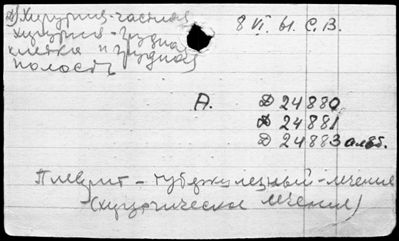 а) Хирургия-частная
8 VI. 61. С.В.
хирургия-грудная
клетка и грудная
полость
А. Д 24880
Д 24881
Д 24883 алб.
Плеврит - туберкулезный - лечение
(хирургическое лечение)